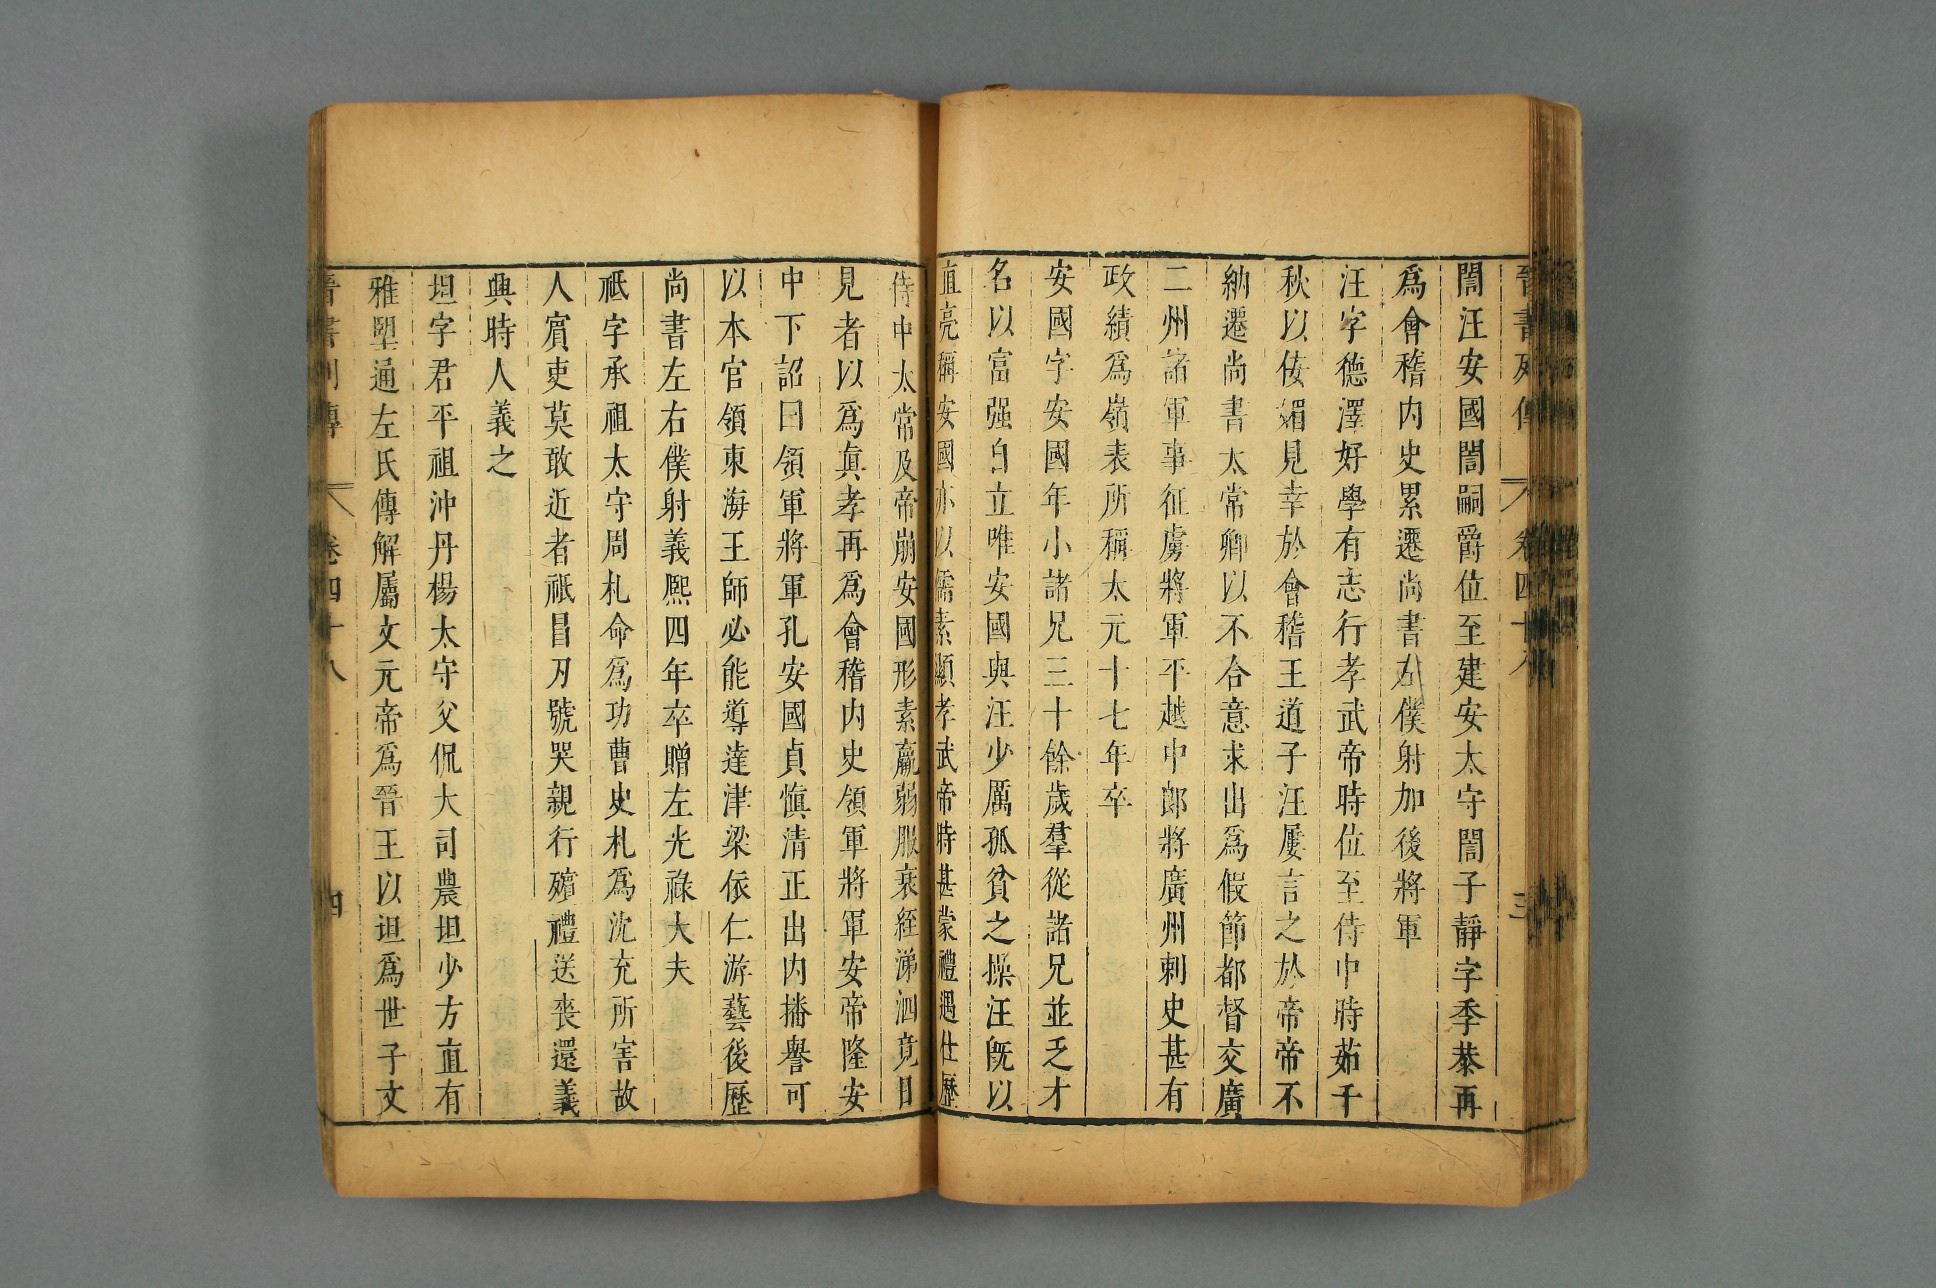 晉書列傳 卷四十八 三
誾汪安國誾嗣爵位至建安太守誾子靜字季恭再
爲會稽内史累遷尚書左僕射加後將軍
汪字德澤好學有志行孝武帝時位至侍中時茹千
秋以佞媚見幸於會稽王道子汪屢言之於帝帝不
納遷尚書太常卿以不合意求出爲假節都督交廣
二州諸軍事征虜將軍平越中郎將廣州刺史甚有
政績爲嶺表所稱太元十七年卒
安國字安國年小諸兄三十餘歲羣從諸兄並乏才
名以富强自立唯安國與汪少厲孤貧之操汪旣以
直亮稱安國亦以儒素顯孝武帝時甚蒙禮遇仕歷
侍中太常及帝崩安國形素羸弱服衰絰涕泗竟日
見者以爲眞孝再爲會稽内史領軍將軍安帝隆安
中下詔曰領軍將軍孔安國貞愼清正出内播譽可
以本官領東海王師必能導達津梁依仁游藝後歷
尚書左右僕射義熙四年卒贈左光祿大夫
祗字承祖太守周札命爲功曹史札爲沈充所害故
人賓吏莫敢近者祗冒刃號哭親行殯禮送喪還義
興時人義之
坦字君平祖沖丹楊太守父侃大司農坦少方直有
雅望通左氏傳解屬文元帝爲晉王以坦爲世子文
晉書列傳 卷四十八 四